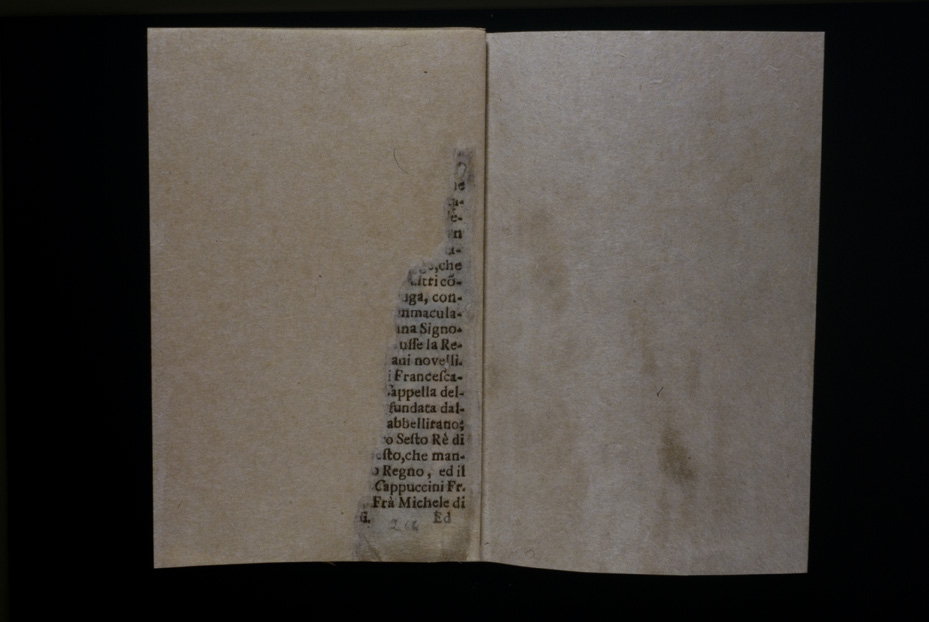 le
a-
e-
n
a-
go,che
ltri cõ-
uga, con-
mmacula-
ana Signo-
usse la Re-
ani novelli.
i Francesca-
Cappella del-
fundata dal-
abbellirano;
ro Sesto Rè di
esto,che man-
o Regno, ed il
Cappuccini Fr.
Frà Michele di
G. Ed